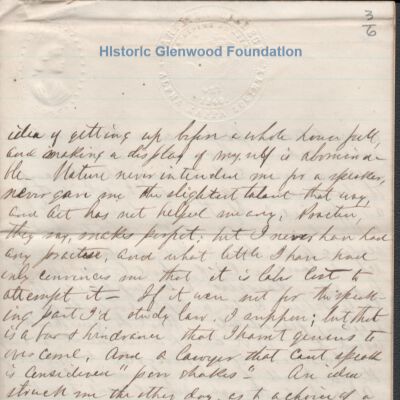 3/6
Historic Glenwood Foundation
idea of getting up before a whole house full,
and making a display of myself is abomina
ble - Nature never intended me for a speaker,
never gave me the slightest talent that way,
and Art has not helped me any, Practice,
they say, makes perfect; but I never have had
any practice, and what little I have had
only convinces me that it is labor lost to
attempt it - If it were not for this speak-
ing part I'd study law, I suppose; but that
is a bar & hindrance that I havnt genius to
overcome, And a lawyer that cant speak
is considered "poor shakes" - An idea
struck me the other day, as to a